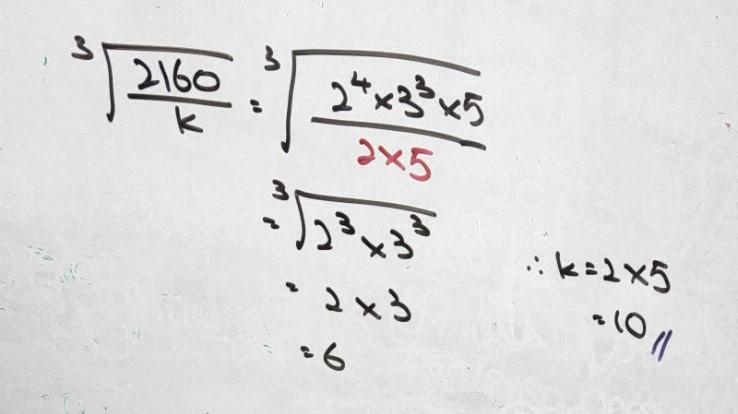 ∛(2160/k) = ∛((2⁴×3³×5)/(2×5))
= ∛(2³×3³)
= 2×3
= 6
∴ k=2×5
=10 //